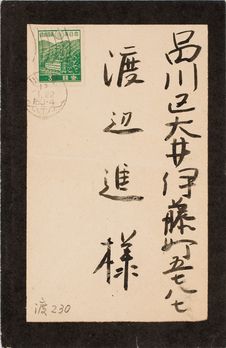 品川区大井伊藤町五七八七
渡辺進様
渡230